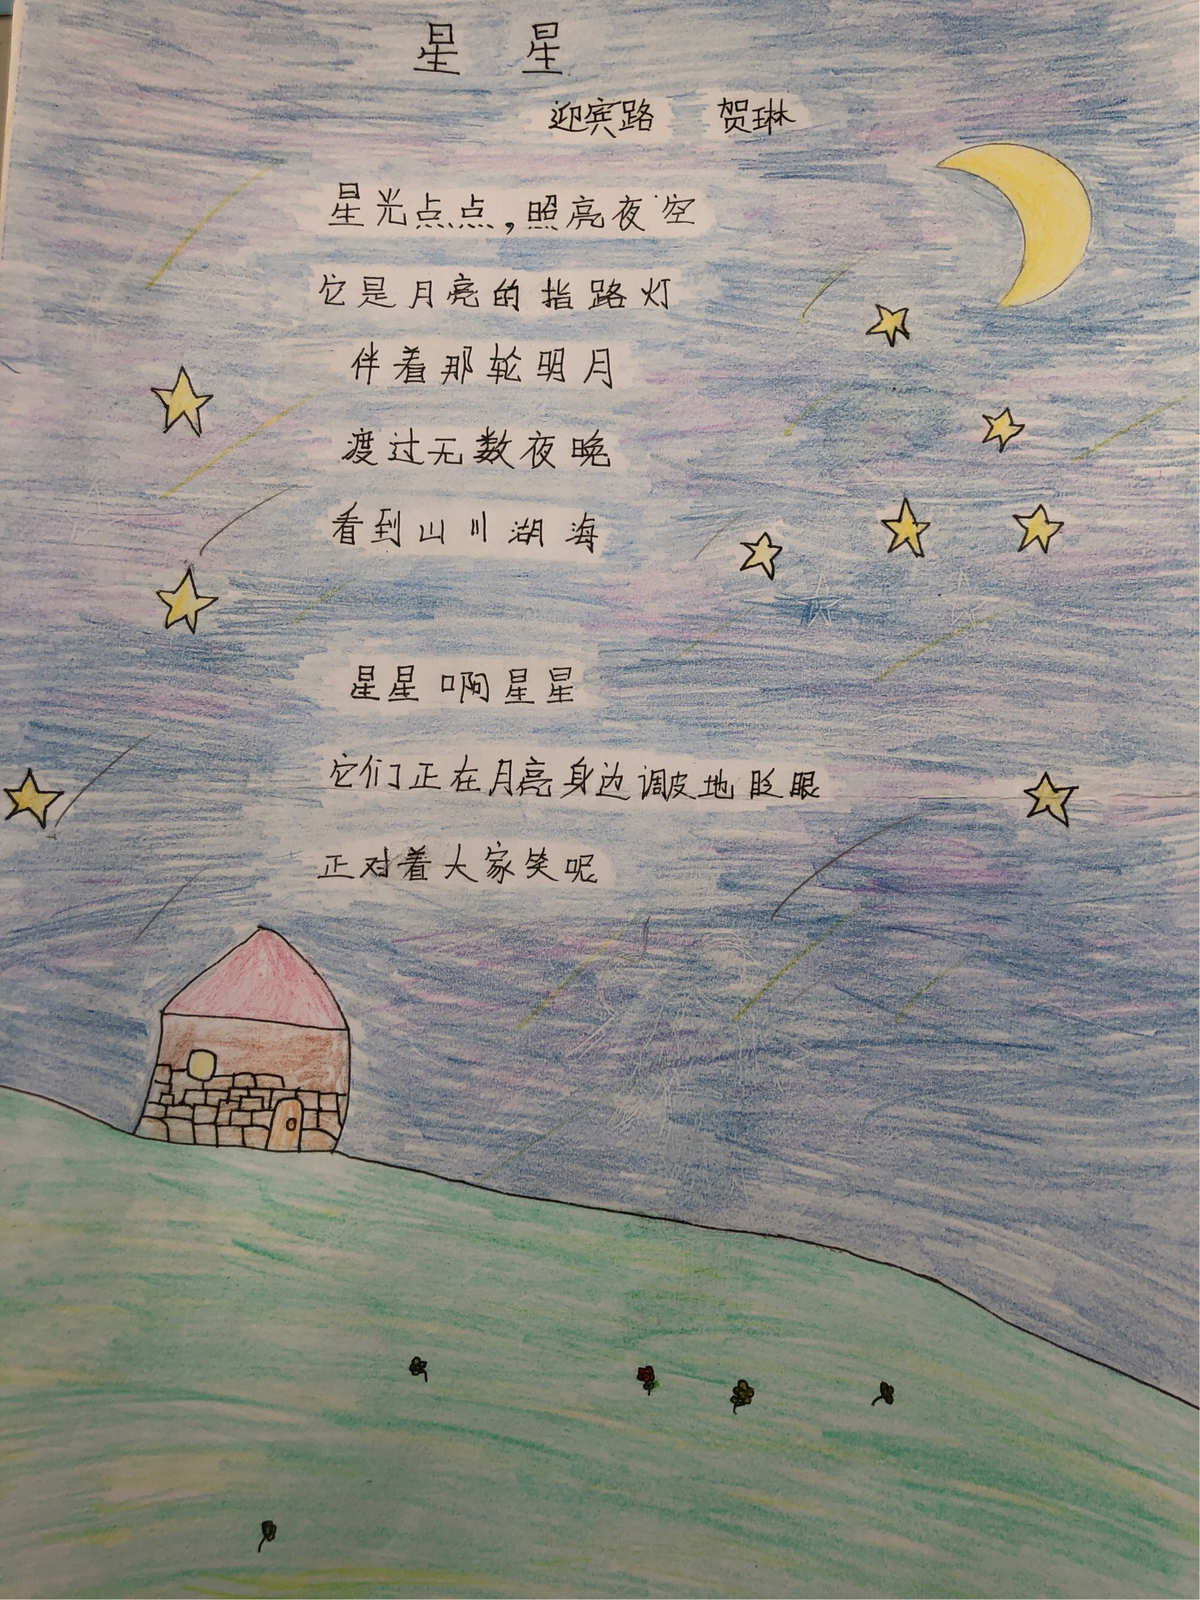 星 星
迎宾路 贺琳
星光点点,照亮夜空
它是月亮的指路灯
伴着那轮明月
渡过无数夜晚
看到山川湖海
星星啊星星
它们正在月亮身边调皮地眨眼
正对着大家笑呢